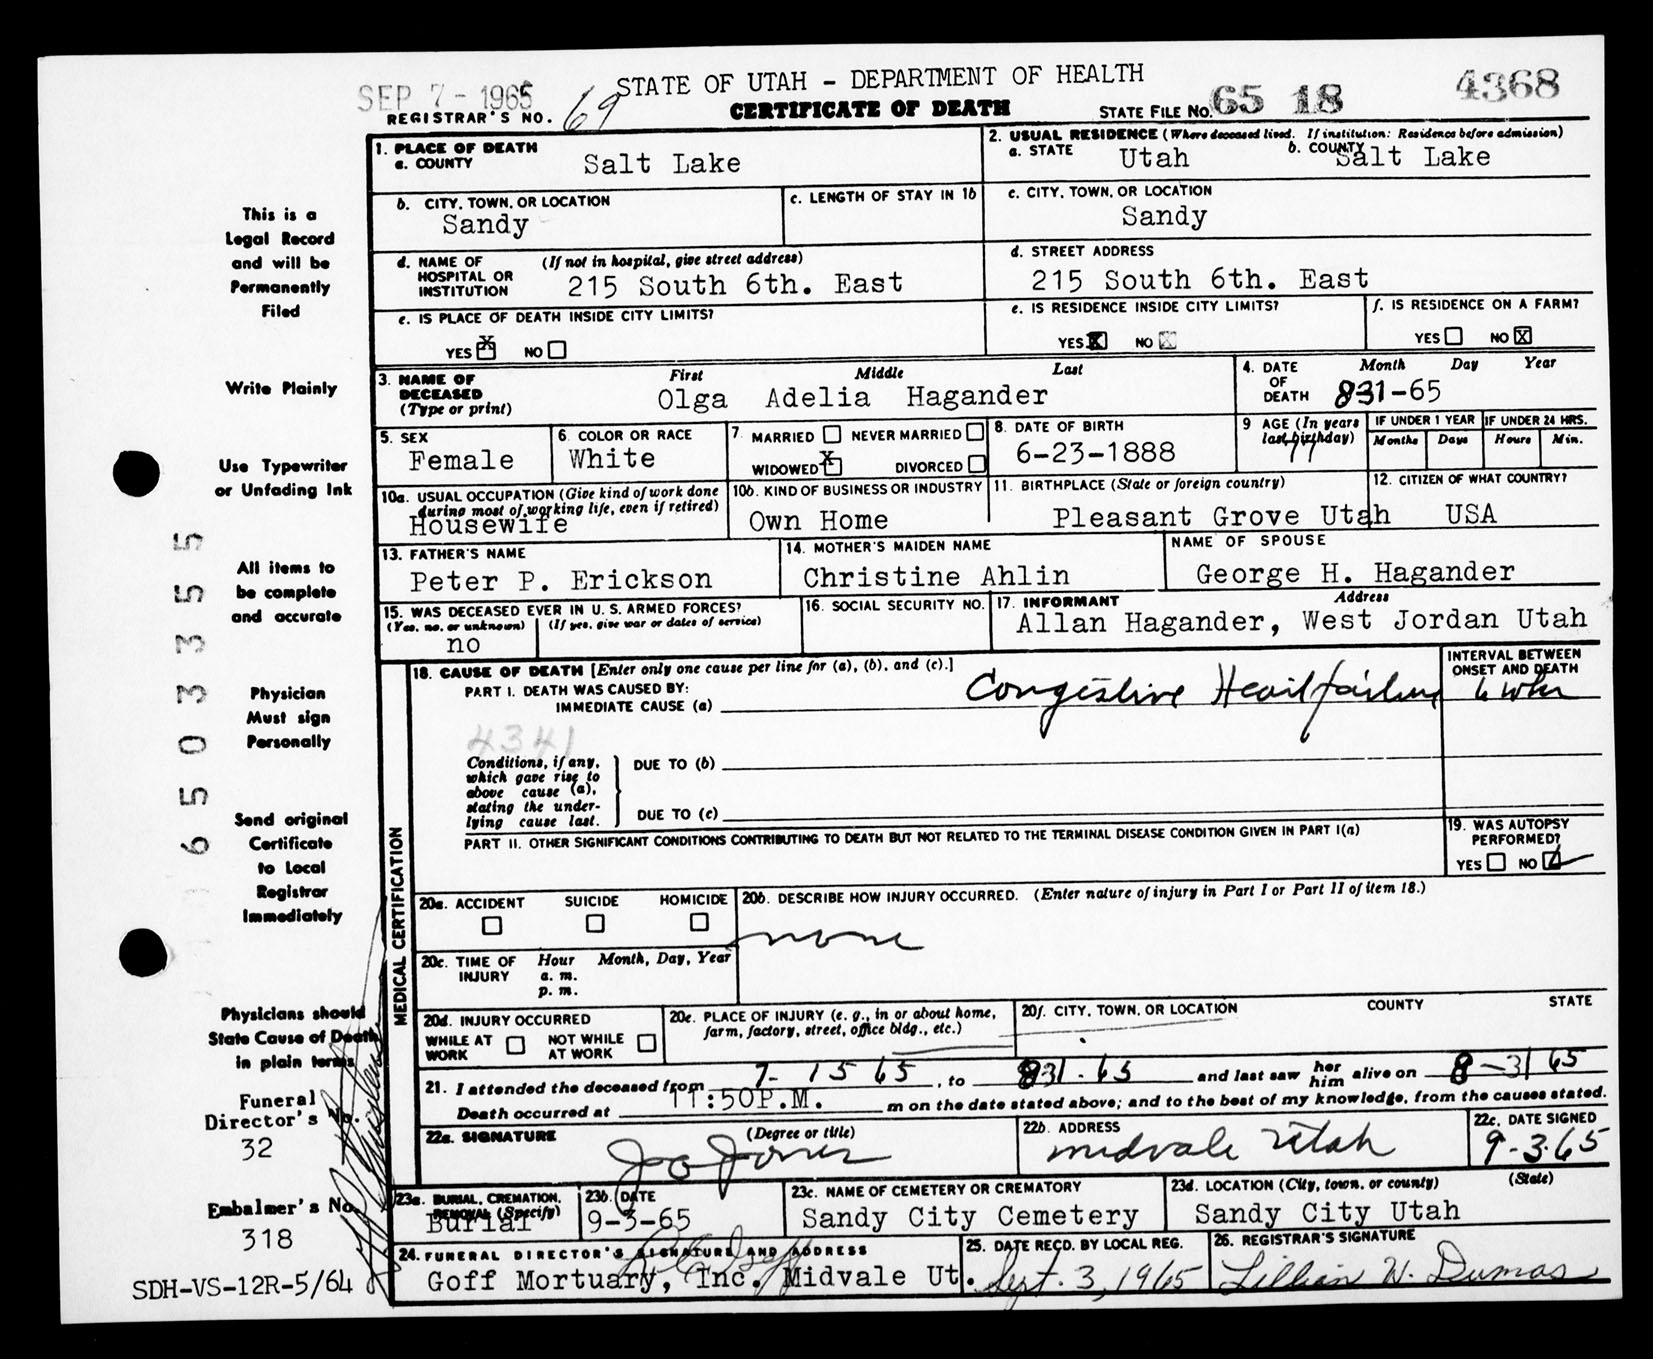 SEP 7 - 1965
STATE OF UTAH - DEPARTMENT OF HEALTH
4368
REGISTRAR'S NO. 69
CERTIFICATE OF DEATH
STATE FILE NO. 65 18
This is a
Legal Record
and will be
Permanently
Filed
Write Plainly
Use Typewriter
or Unfading Ink
All items to
be complete
and accurate
Physician
Must sign
Personally
Send original
Certificate
to Local
Registrar
Immediately
Physicians should
State Cause of Death
in plain terms
Funeral
Director's No.
32
Embalmer's No.
318
SDH-VS-12R-5/64
65033555
1. PLACE OF DEATH
a. COUNTY Salt Lake
2. USUAL RESIDENCE (Where deceased lived. If institution: Residence before admission)
a. STATE Utah b. COUNTY Salt Lake
b. CITY, TOWN, OR LOCATION
Sandy
c. LENGTH OF STAY IN 1b
c. CITY, TOWN, OR LOCATION
Sandy
d. NAME OF HOSPITAL OR INSTITUTION (If not in hospital, give street address)
215 South 6th. East
d. STREET ADDRESS
215 South 6th. East
e. IS PLACE OF DEATH INSIDE CITY LIMITS?
YES X NO
e. IS RESIDENCE INSIDE CITY LIMITS?
YES X NO X
f. IS RESIDENCE ON A FARM?
YES NO X
3. NAME OF DECEASED (Type or print)
First Middle Last
Olga Adelia Hagander
4. DATE OF DEATH Month Day Year
831-65
5. SEX
Female
6. COLOR OR RACE
White
7. MARRIED NEVER MARRIED
WIDOWED X DIVORCED
8. DATE OF BIRTH
6-23-1888
9 AGE (In years last birthday)
77
IF UNDER 1 YEAR
Months Days
IF UNDER 24 HRS.
Hours Min.
10a. USUAL OCCUPATION (Give kind of work done during most of working life, even if retired)
Housewife
10b. KIND OF BUSINESS OR INDUSTRY
Own Home
11. BIRTHPLACE (State or foreign country)
Pleasant Grove Utah
12. CITIZEN OF WHAT COUNTRY?
USA
13. FATHER'S NAME
Peter P. Erickson
14. MOTHER'S MAIDEN NAME
Christine Ahlin
NAME OF SPOUSE
George H. Hagander
15. WAS DECEASED EVER IN U. S. ARMED FORCES?
(Yes, no, or unknown) (If yes, give war or dates of service)
no
16. SOCIAL SECURITY NO.
17. INFORMANT Address
Allan Hagander, West Jordan Utah
MEDICAL CERTIFICATION
18. CAUSE OF DEATH [Enter only one cause per line for (a), (b), and (c).]
PART I. DEATH WAS CAUSED BY:
IMMEDIATE CAUSE (a) Congestive Heart failure
INTERVAL BETWEEN ONSET AND DEATH
6 wks
4341
Conditions, if any, which gave rise to above cause (a), stating the underlying cause last.
DUE TO (b)
DUE TO (c)
PART II. OTHER SIGNIFICANT CONDITIONS CONTRIBUTING TO DEATH BUT NOT RELATED TO THE TERMINAL DISEASE CONDITION GIVEN IN PART I(a)
19. WAS AUTOPSY PERFORMED?
YES NO
20a. ACCIDENT SUICIDE HOMICIDE
20b. DESCRIBE HOW INJURY OCCURRED. (Enter nature of injury in Part I or Part II of item 18.)
none
20c. TIME OF INJURY Hour Month, Day, Year
a. m.
p. m.
20d. INJURY OCCURRED
WHILE AT WORK NOT WHILE AT WORK
20e. PLACE OF INJURY (e. g., in or about home, farm, factory, street, office bldg., etc.)
20f. CITY, TOWN, OR LOCATION COUNTY STATE
21. I attended the deceased from 7-15 65, to 831-65 and last saw her him alive on 8-31 65
Death occurred at 11:50P.M. m on the date stated above; and to the best of my knowledge, from the causes stated.
22a. SIGNATURE (Degree or title)
22b. ADDRESS
midvale Utah
22c. DATE SIGNED
9-3-65
23a. BURIAL, CREMATION, REMOVAL (Specify)
Burial
23b. DATE
9-3-65
23c. NAME OF CEMETERY OR CREMATORY
Sandy City Cemetery
23d. LOCATION (City, town, or county) (State)
Sandy City Utah
24. FUNERAL DIRECTOR'S SIGNATURE AND ADDRESS
Goff Mortuary, Inc. Midvale Ut.
25. DATE RECD. BY LOCAL REG.
Sept. 3, 1965
26. REGISTRAR'S SIGNATURE
Lillian W. Dumas